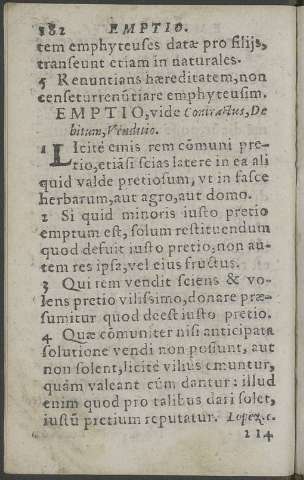 882 EMPTIO.
tem emphyteuses datæ pro filijs,
transeunt etiam in naturales.
5 Renuntians hæreditatem, non
censetur renũtiare emphyteusim.
EMPTIO, vide Contractus, De
bitum, Venditio.
1 Licitè emis rem cõmuni pre-
tio, etiãsi scias latere in ea ali
quid valde pretiosum, vt in fasce
herbarum, aut agro, aut domo.
2 Si quid minoris iusto pretio
emptum est, solum restituendum
quod defuit iusto pretio, non au-
tem res ipsa, vel eius fructus.
3 Qui rem vendit sciens & vo-
lens pretio vilissimo, donare præ-
sumitur quod deest iusto pretio.
4 Quæ cõmuniter nisi anticipata
solutione vendi non possunt, aut
non solent, licitè vilius emuntur,
quàm valeant cùm dantur: illud
enim quod pro talibus dari solet,
iustũ pretium reputatur. Lopez. c.
214